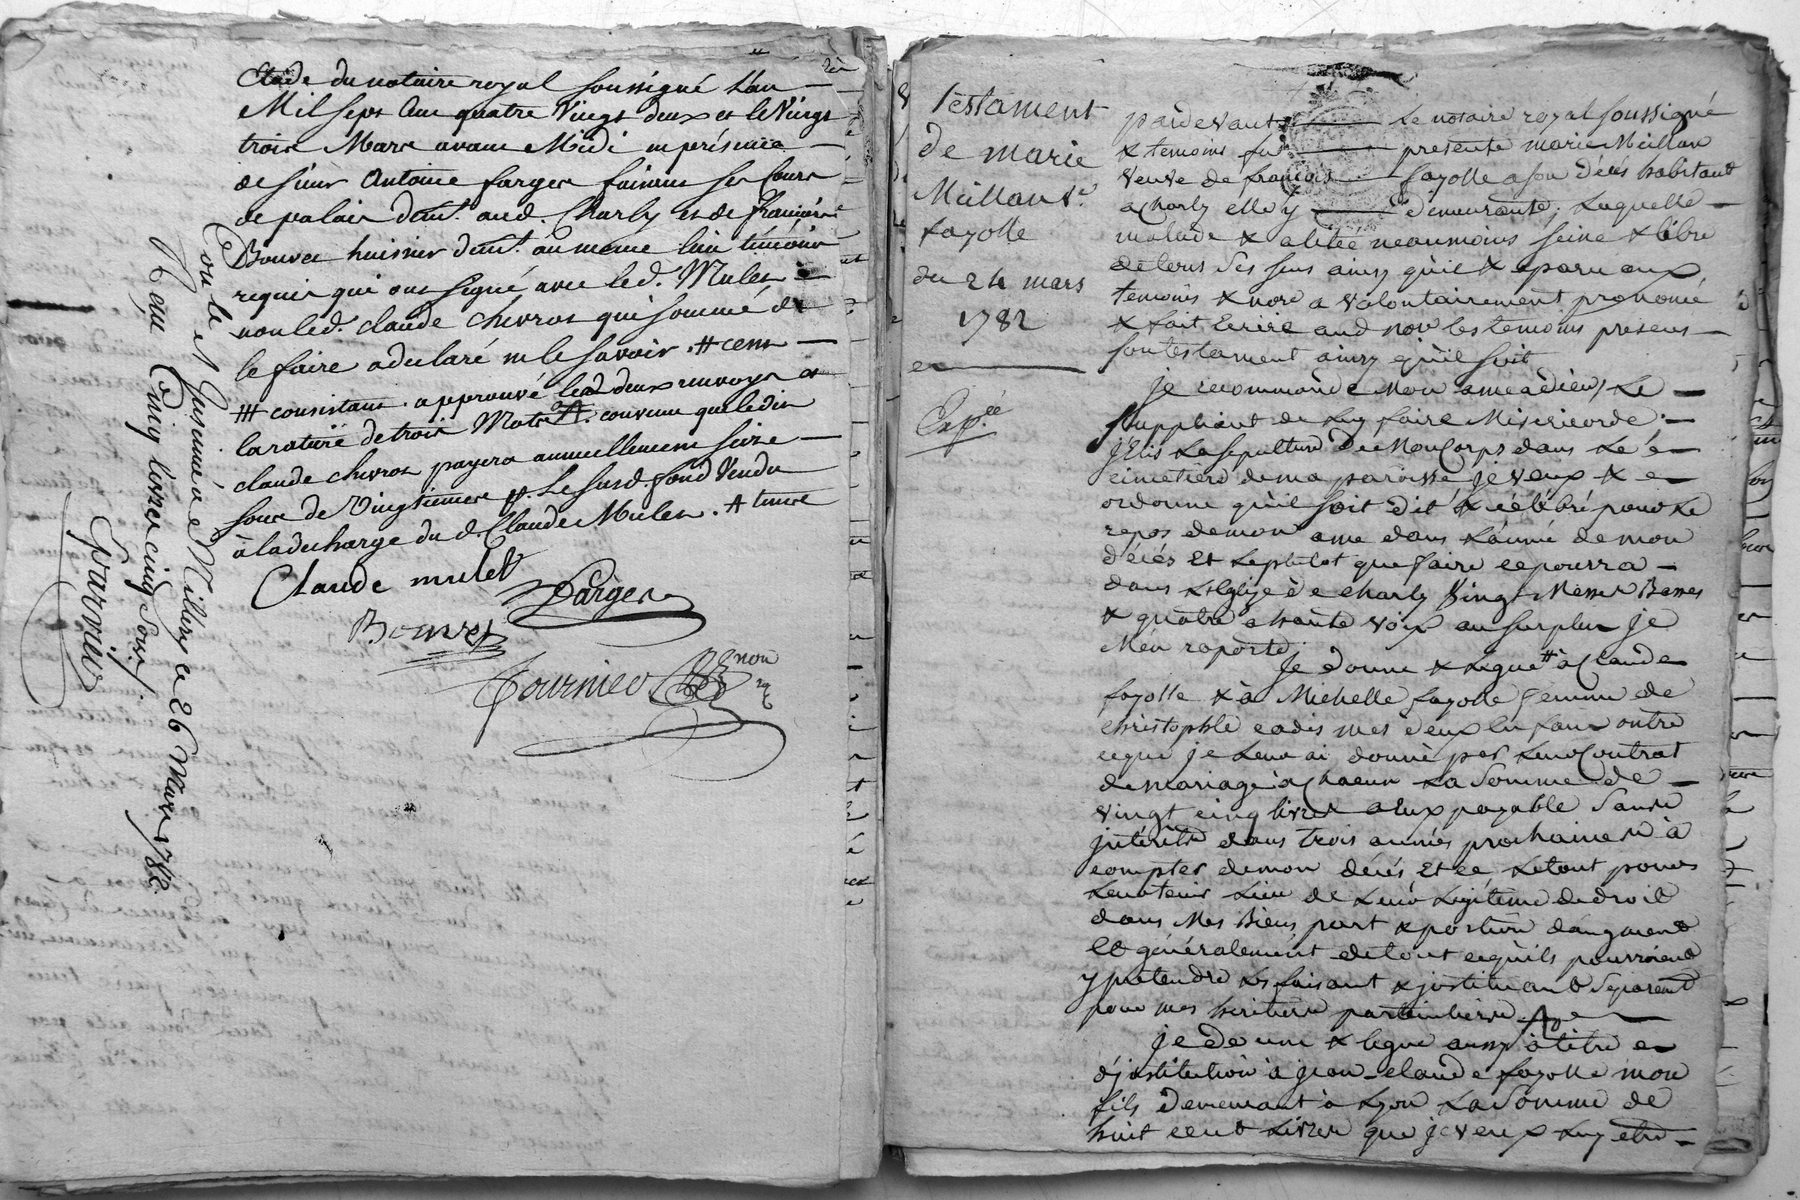 Etude du notaire royal soussigné L'an
Mil sept Cent quatre Vingt deux et le Vingt
trois Mars avant Midi en présence
de sieur Antoine farges faisant ses Cours
de palais demt. aud. Charly et de
Bouvet huissier demt. au meme lieu témoins
requis qui ont signé avec led. Mulet
non led. Claude Chevrot qui sommé de
le faire a declaré ne le savoir . # cens
## consistant . approuvé les deux renvoys et
la rature de trois Mots A. convenu que ledit
Claude Chevrot payera annuellement seize
sous de Vingtiemes pr. Le susd. fond Vendu
à la decharge du d. Claude Mulet . A
Claude mulet
farges
Bouvet
fournier
non
Controlé et Insinué a Millery ce 26 Mars 1782.
Reçu Cinq livres cinq sols.
Testament
de marie
Meillan ve
fayolle
du 24 mars
1782
Exp.ée
pardevant Le notaire royal soussigné
& temoins fu presente marie Meillan
veuve de françois fayolle a son décés habitant
a charly elle y demeurante, Laquelle
malade & alitée neaumoins seine & libre
de tous Ses sens ainsy qu'il & aparu aux
temoins & nore a volontairement prononcé
& fait Ecrire aud nore les temoins présens
son testament ainsy qu'il suit
je recommande Mon ame a dieu, Le
suppliant de Luy faire Misericorde,
j'Elis La sepulture De Mon Corps dans Le
cimetiere de ma paroisse je veux &
ordonne qu'il soit dit & célébré pour Le
repos de mon ame dans L'année de mon
décés Et Le plutot que faire ce pourra
dans L'Eglize de charly Vingt Messes Basses
& quatre a haute voix au surplus je
M'en raporte,
Je donne & Legue # à Claude
fayolle & à Michelle fayolle femme de
christophle cadis mes deux Enfans outre
ce que je Leur ai donné par Leur Contrat
de mariage à Chacun La Somme de
vingt cinq livres a Eux payable Sans
jntérets dans trois années prochaines à
compter de mon décés Et ce Le tout pour
Leur tenir Lieu de Leur Légitime de droit
dans Mes Biens part & portion d'augment
Et généralement de tout ce qu'ils pourroient
y prétendre Les faisant & jnstituant Separemt
pour mes heritiers particuliers
je donne & legue aussy à titre
d'jnstitution à jean claude fayolle mon
fils Demeurant à Lyon La Somme de
huit cent Livres que je veux Luy etre